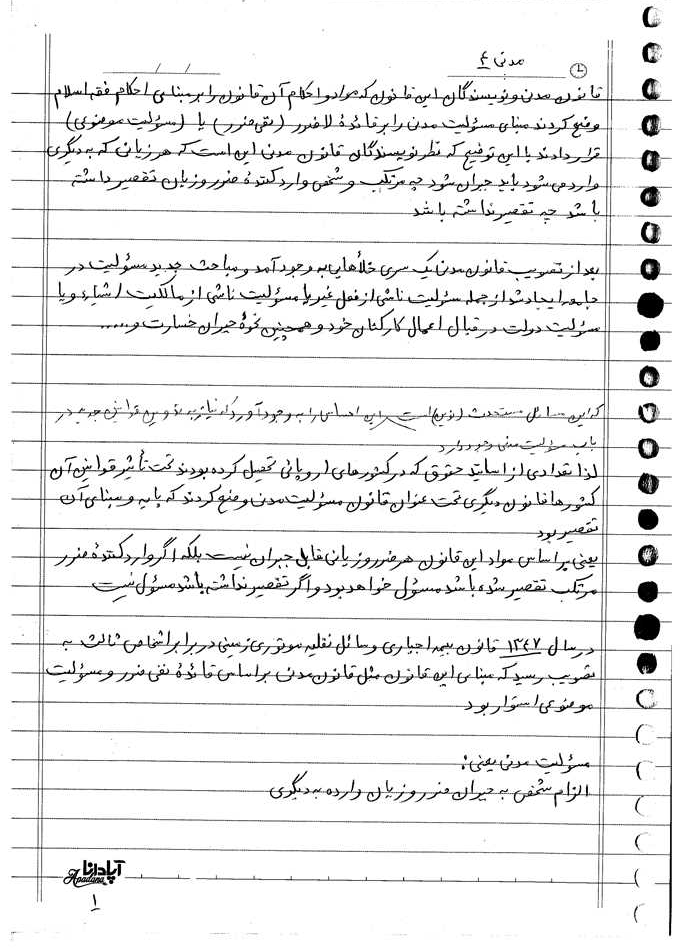 مدنی ۴
قانون مدنی و نویسندگان این قانون که مواد و احکام آن قانون را بر مبنای احکام فقه اسلام
وضع کردند مبنای مسؤلیت مدنی را بر قائدهٔ لاضرر (نفی ضرر) یا (مسؤلیت موضوعی)
قرار دادند با این توضیح که نظر نویسندگان قانون مدنی این است که هر زیانی که به دیگری
وارد می شود باید جبران شود چه مرتکب و شخص وارد کنندهٔ ضرر و زیان تقصیر داشته
باشد چه تقصیر نداشته باشد
بعد از تصویب قانون مدنی یک سری خلأهایی به وجود آمد و مباحث جدید مسؤلیت در
جامعه ایجاد شد از جمله مسؤلیت ناشی از فعل غیر یا مسؤلیت ناشی از مالکیت اشیاء و یا
مسؤلیت دولت در قبال اعمال کارکنان خود و همچنین نحوهٔ جبران خسارت و.....
که این مسائل مستحدث (نوین) است این احساس را به وجود آورد که نیاز به تدوین قوانین جدید در
باب مسؤلیت مدنی وجود دارد
لذا تعدادی از اساتید حقوق که در کشورهای اروپائی تحصیل کرده بودند تحت تأثیر قوانین آن
کشورها قانون دیگری تحت عنوان قانون مسؤلیت مدنی وضع کردند که پایه و مبنای آن
تقصیر بود
یعنی بر اساس مواد این قانون هر ضرر و زیانی قابل جبران نیست بلکه اگر وارد کنندهٔ ضرر
مرتکب تقصیر شده باشد مسؤل خواهد بود و اگر تقصیر نداشته باشد مسؤل نیست
در سال ۱۳۴۷ قانون بیمه اجباری وسائل نقلیه موتوری زمینی در برابر اشخاص ثالث به
تصویب رسید که مبنای این قانون مثل قانون مدنی بر اساس قائدهٔ نفی ضرر و مسؤلیت
موضوعی استوار بود
مسؤلیت مدنی یعنی:
الزام شخص به جبران ضرر و زیان وارده به دیگری
آپادانا
Apadana
۱